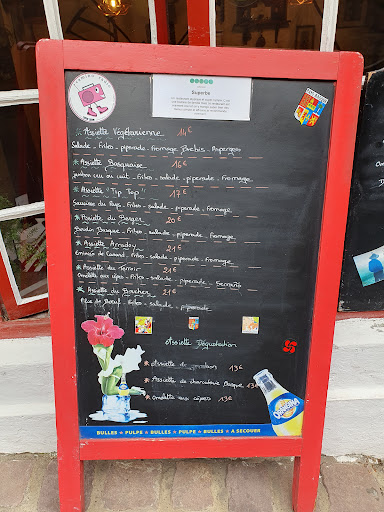 Superbe
Assiette Végétarienne 14€
Salade - Frites - piperade - fromage Brebis - Asperges
Assiette Basquaise 16€
Jambon cru ou cuit - Frites - salade - piperade - fromage
Assiette "Tip Top" 17€
Saucisse du Pays - Frites - salade - piperade - fromage
Assiette du Berger 20€
Boudin Basque - Frites - salade - piperade - fromage
Assiette Arradoy 21€
Emincés de Canard - Frites - salade - piperade - fromage
Assiette du Terroir 21€
Omelette aux cèpes - Frites - salade - piperade - Serrano
Assiette du Boucher 21€
Pièce de Boeuf - Frites - salade - piperade
Assiette Dégustation
Assiette de 13€
Assiette de charcuterie Basque 13€
Omelette aux cèpes 13€
BULLES ★ PULPE ★ BULLES ★ PULPE ★ BULLES ★ A SECOUER